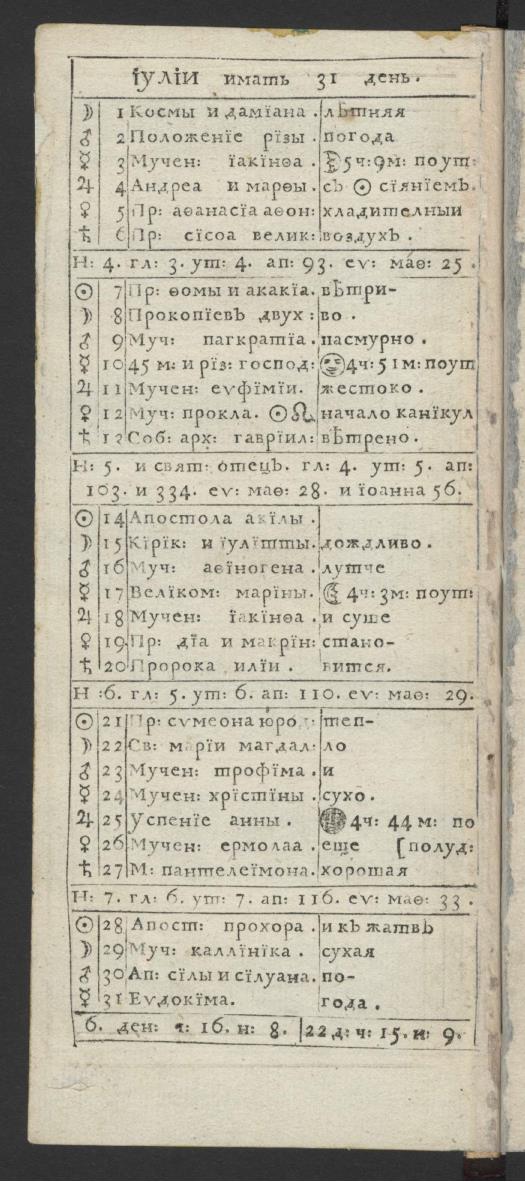 іулїи имать 31 день.
☽ 1 Космы и дамїана. лѣтняя
♂ 2 Положенїе рїзы. погода
☿ 3 Мучен: їакїнѳа. ☽5ч:9м: поут:
♃ 4 Андреа и марѳы. съ ☉ сїянїемъ.
♀ 5 Пр: аѳанасїа аѳон: хладителныи
♄ 6 Пр: сїсоа велик: воздухъ.
Н: 4. гл: 3. ут: 4. ап: 93. еѵ: маѳ: 25.
☉ 7 Пр: ѳомы и акакїа. вѣтри-
☽ 8 Прокопїевъ двух: во.
♂ 9 Муч: пагкратїа. пасмурно.
☿ 10 45 м: и рїз: господ: 4ч:51м: поут
♃ 11 Мучен: еѵфїмїи. жестоко.
♀ 12 Муч: прокла. ☉♌ начало канїкул
♄ 13 Соб: арх: гаврїил: вѣтрено.
Н: 5. и свят: отецъ. гл: 4. ут: 5. ап:
103. и 334. еѵ: маѳ: 28. и їоанна 56.
☉ 14 Апостола акїлы.
☽ 15 Кїрїк: и їулїтты. дождливо.
♂ 16 Муч: аѳїногена. лутче
☿ 17 Велїком: марїны. ☾ 4ч: 3м: поут:
♃ 18 Мучен: їакїнѳа. и суше
♀ 19 Пр: дїа и макрїн: стано-
♄ 20 Пророка илїи. вится.
Н: 6. гл: 5. ут: 6. ап: 110. еѵ: маѳ: 29.
☉ 21 Пр: сѵмеона юрод: теп-
☽ 22 Св: марїи магдал: ло
♂ 23 Мучен: трофїма. и
☿ 24 Мучен: хрїстїны. сухо.
♃ 25 Успенїе анны. 4ч: 44м: по
♀ 26 Мучен: ермолаа. еще [полуд:
♄ 27 М: пантелеїмона. хорошая
Н: 7. гл: 6. ут: 7. ап: 116. еѵ: маѳ: 33.
☉ 28 Апост: прохора. и къ жатвѣ
☽ 29 Муч: каллїнїка. сухая
♂ 30 Ап: сїлы и сїлуана. по-
☿ 31 Еѵдокїма. года.
6. ден: ч: 16. н: 8. 22 д: ч: 15. н: 9.